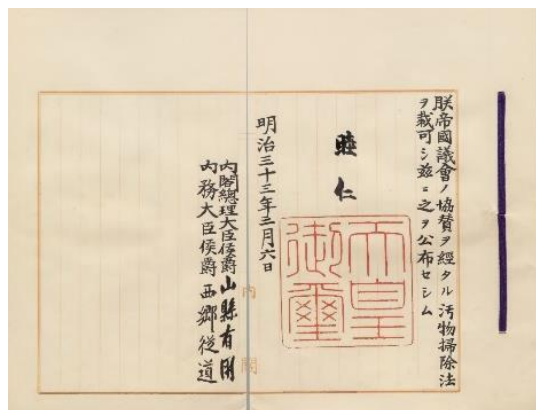 朕帝國議會ノ協賛ヲ經タル汚物掃除法
ヲ裁可シ玆ニ之ヲ公布セシム
睦仁
天皇
御璽
明治三十三年三月六日
内閣總理大臣侯爵山縣有朋
内務大臣侯爵西郷從道
内閣